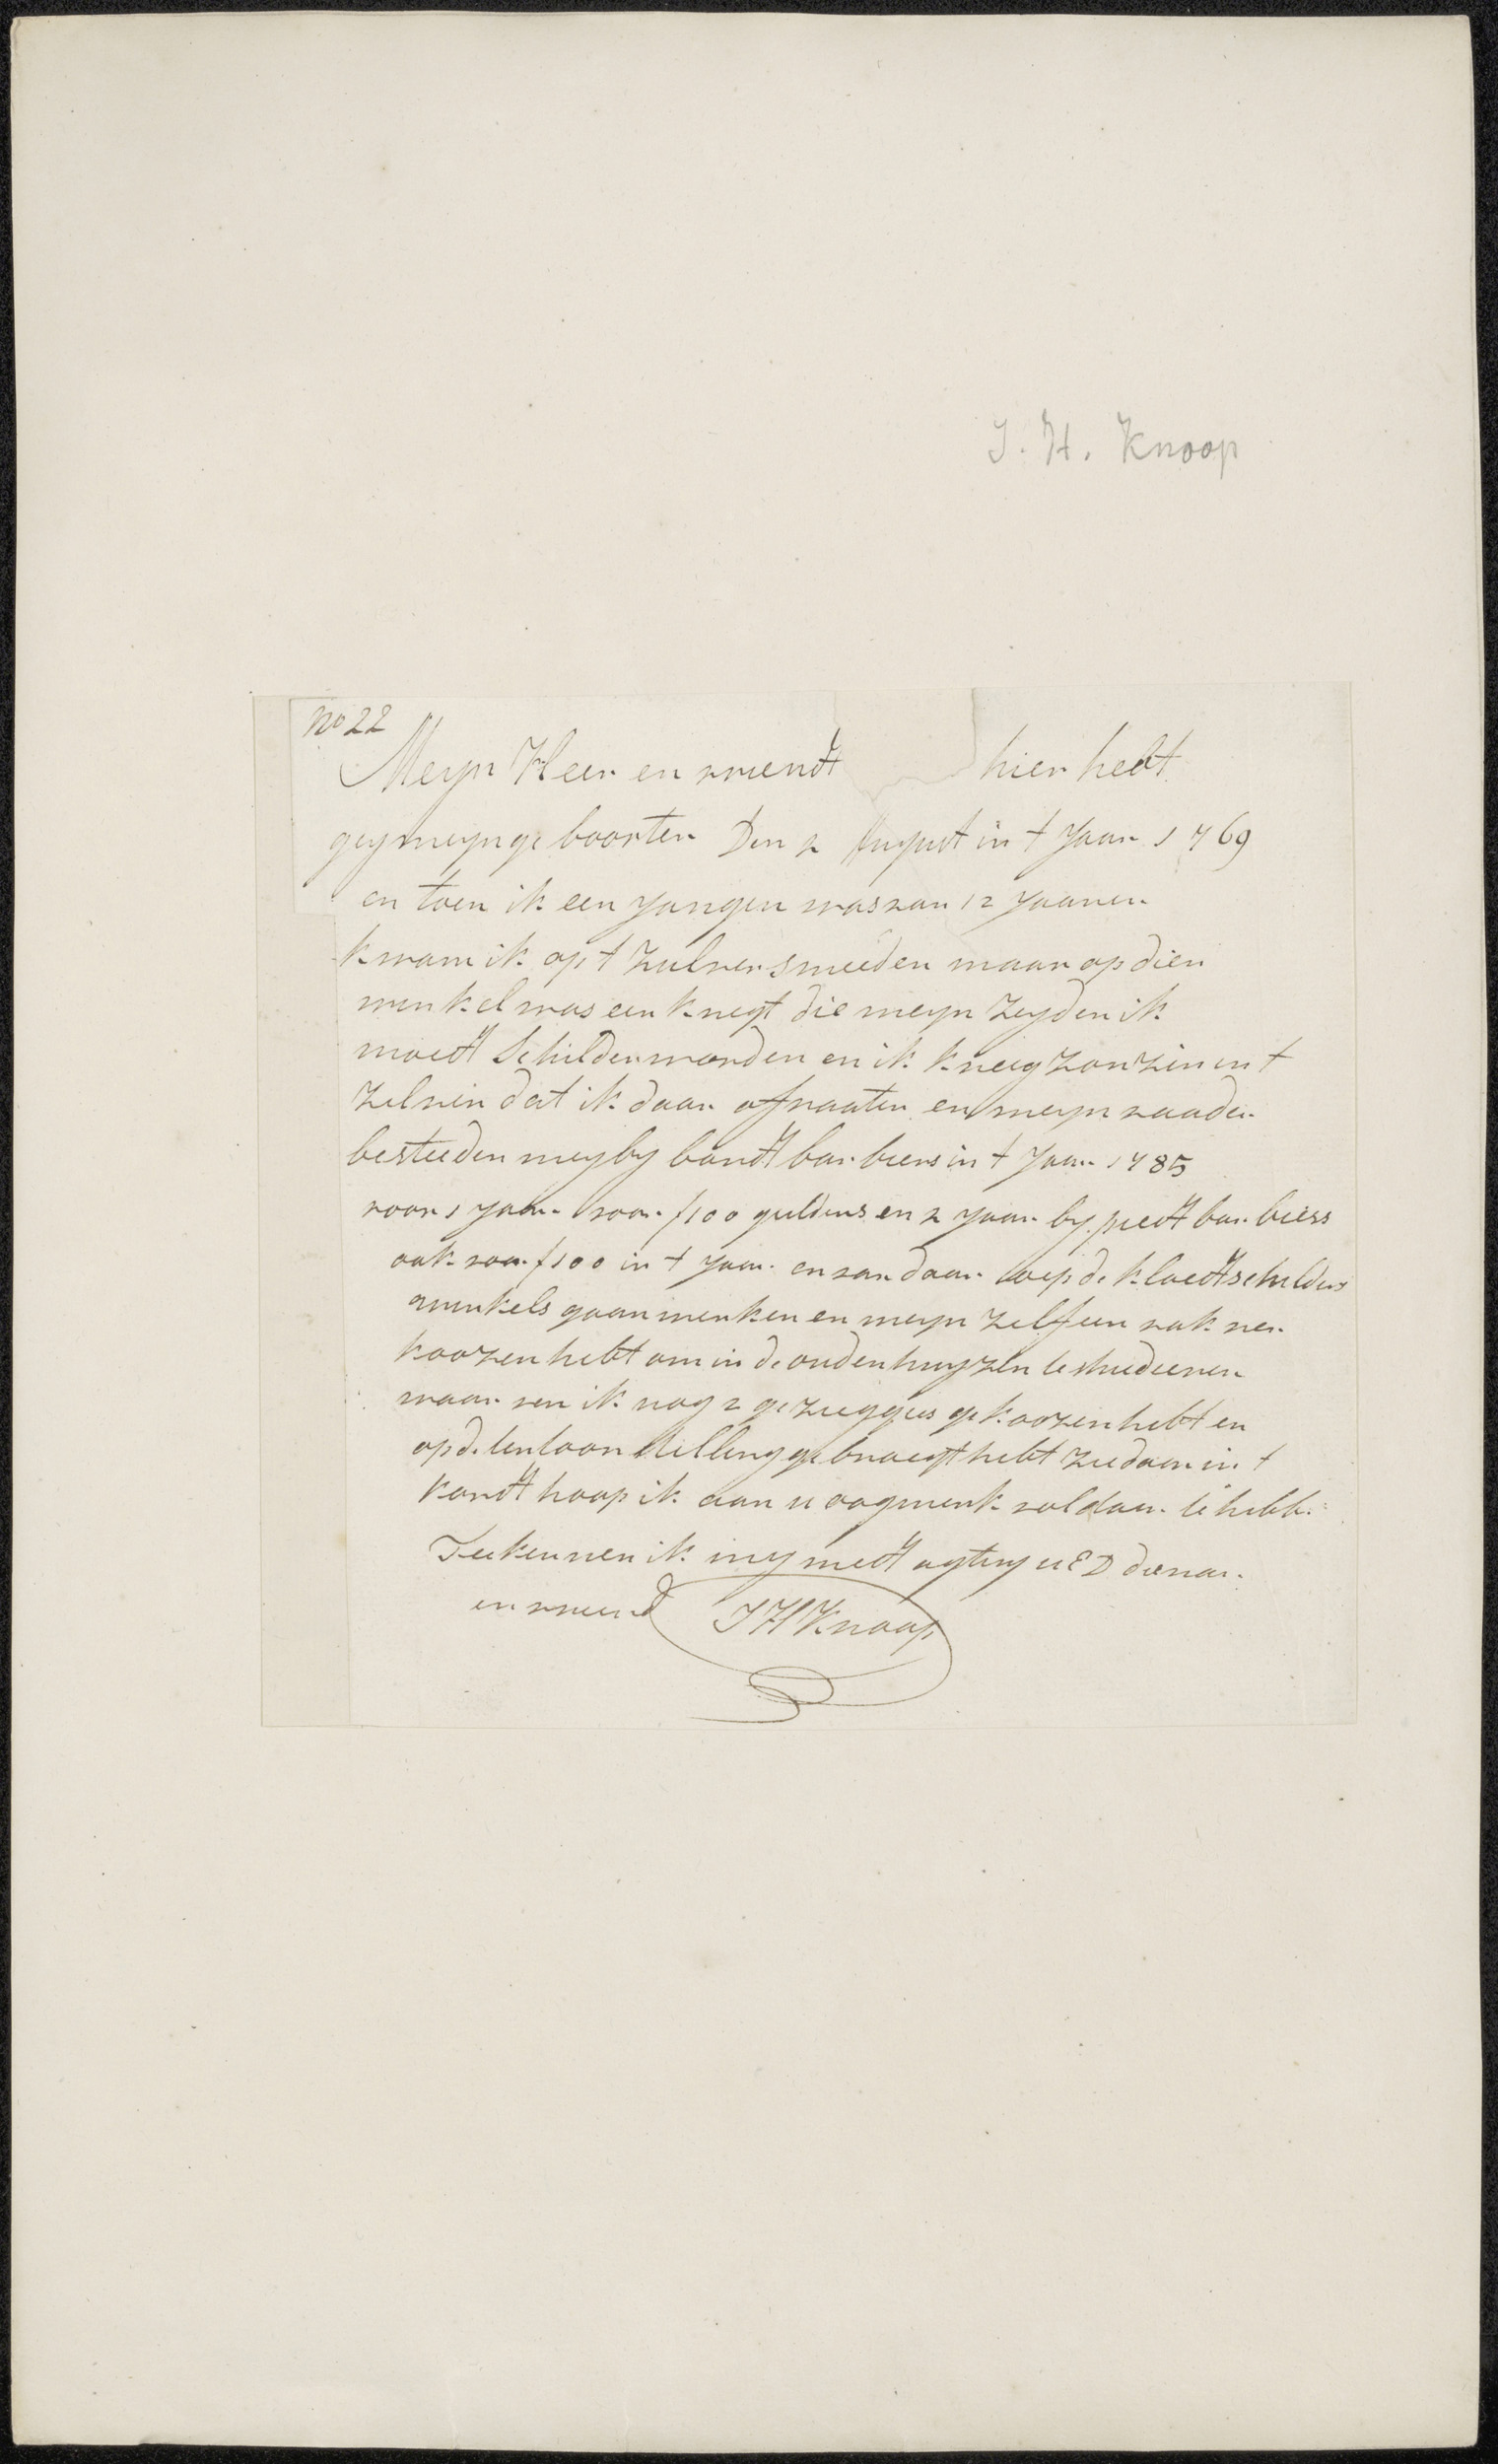 J. H. Knoop
No 22
Meyn Heer en vriendt hier hebt
gey meyn geboorten Den 2 August in t Jaar 1769
en toen ik een Jongen was van 12 Jaaren
kwam ik op t Zulver smeeden maar op dien
winkel was een knegt die meyn zeyden ik
moedt Schilder worden en ik kreeg zon zin in t
zelven dat ik daar afraaten en meyn vaader
besteeden mey by bardt barbiers in t Jaar 1785
voor 1 Jaar voor f100 guldens en 2 Jaar by piedt barbiers
ook voor f100 in t Jaar en van daar op de kloedtschilders
winkels gaan werken en meyn zelf een vak ver
koozen hebt om in de ouden huyzen te studeeren
waar ven ik nog 2 gezeeggies gekoozen hebt en
op de tentoon stelling gebraegt hebt zie daar in t
kordt hoop ik aan u oogmerk voldaan te hebb
Teekennen ik mey medt agting u E D dienaar
en vriend JHKnoop